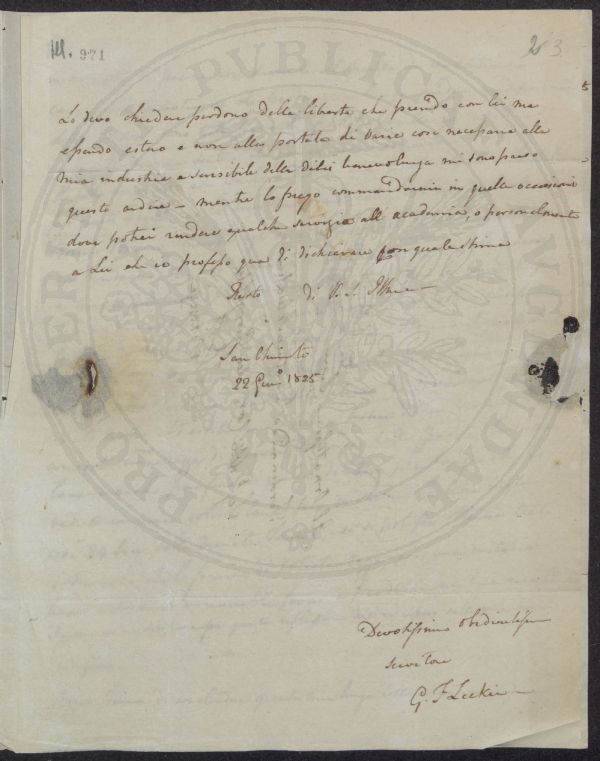 M. 971
23
5
Lo devo chiedere perdono della liberta che prendo con lei ma
essendo estero e non alla portata di varie cose necessarie alla
mia industria e sensibile della di lei benevolenza mi sono preso
questo ardire – mentre la prego commandarmi in quelle occasioni
dove potrei rendere qualche servigio all academia, o personalmente
a Lei che io professo qua di dichiarare con quale stima
Resto di V. S. Illma
San Chimento
22 Giuo 1825
Devotissimo Obedientissimo
servitore
G. F. Leckie
PUBLICA
PROSPERITATI
AUGENDAE